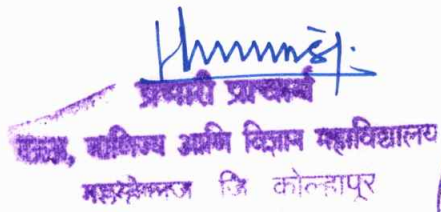 प्रभारी प्राचार्य
कला, वाणिज्य आणि विज्ञान महाविद्यालय
जि कोल्हापूर